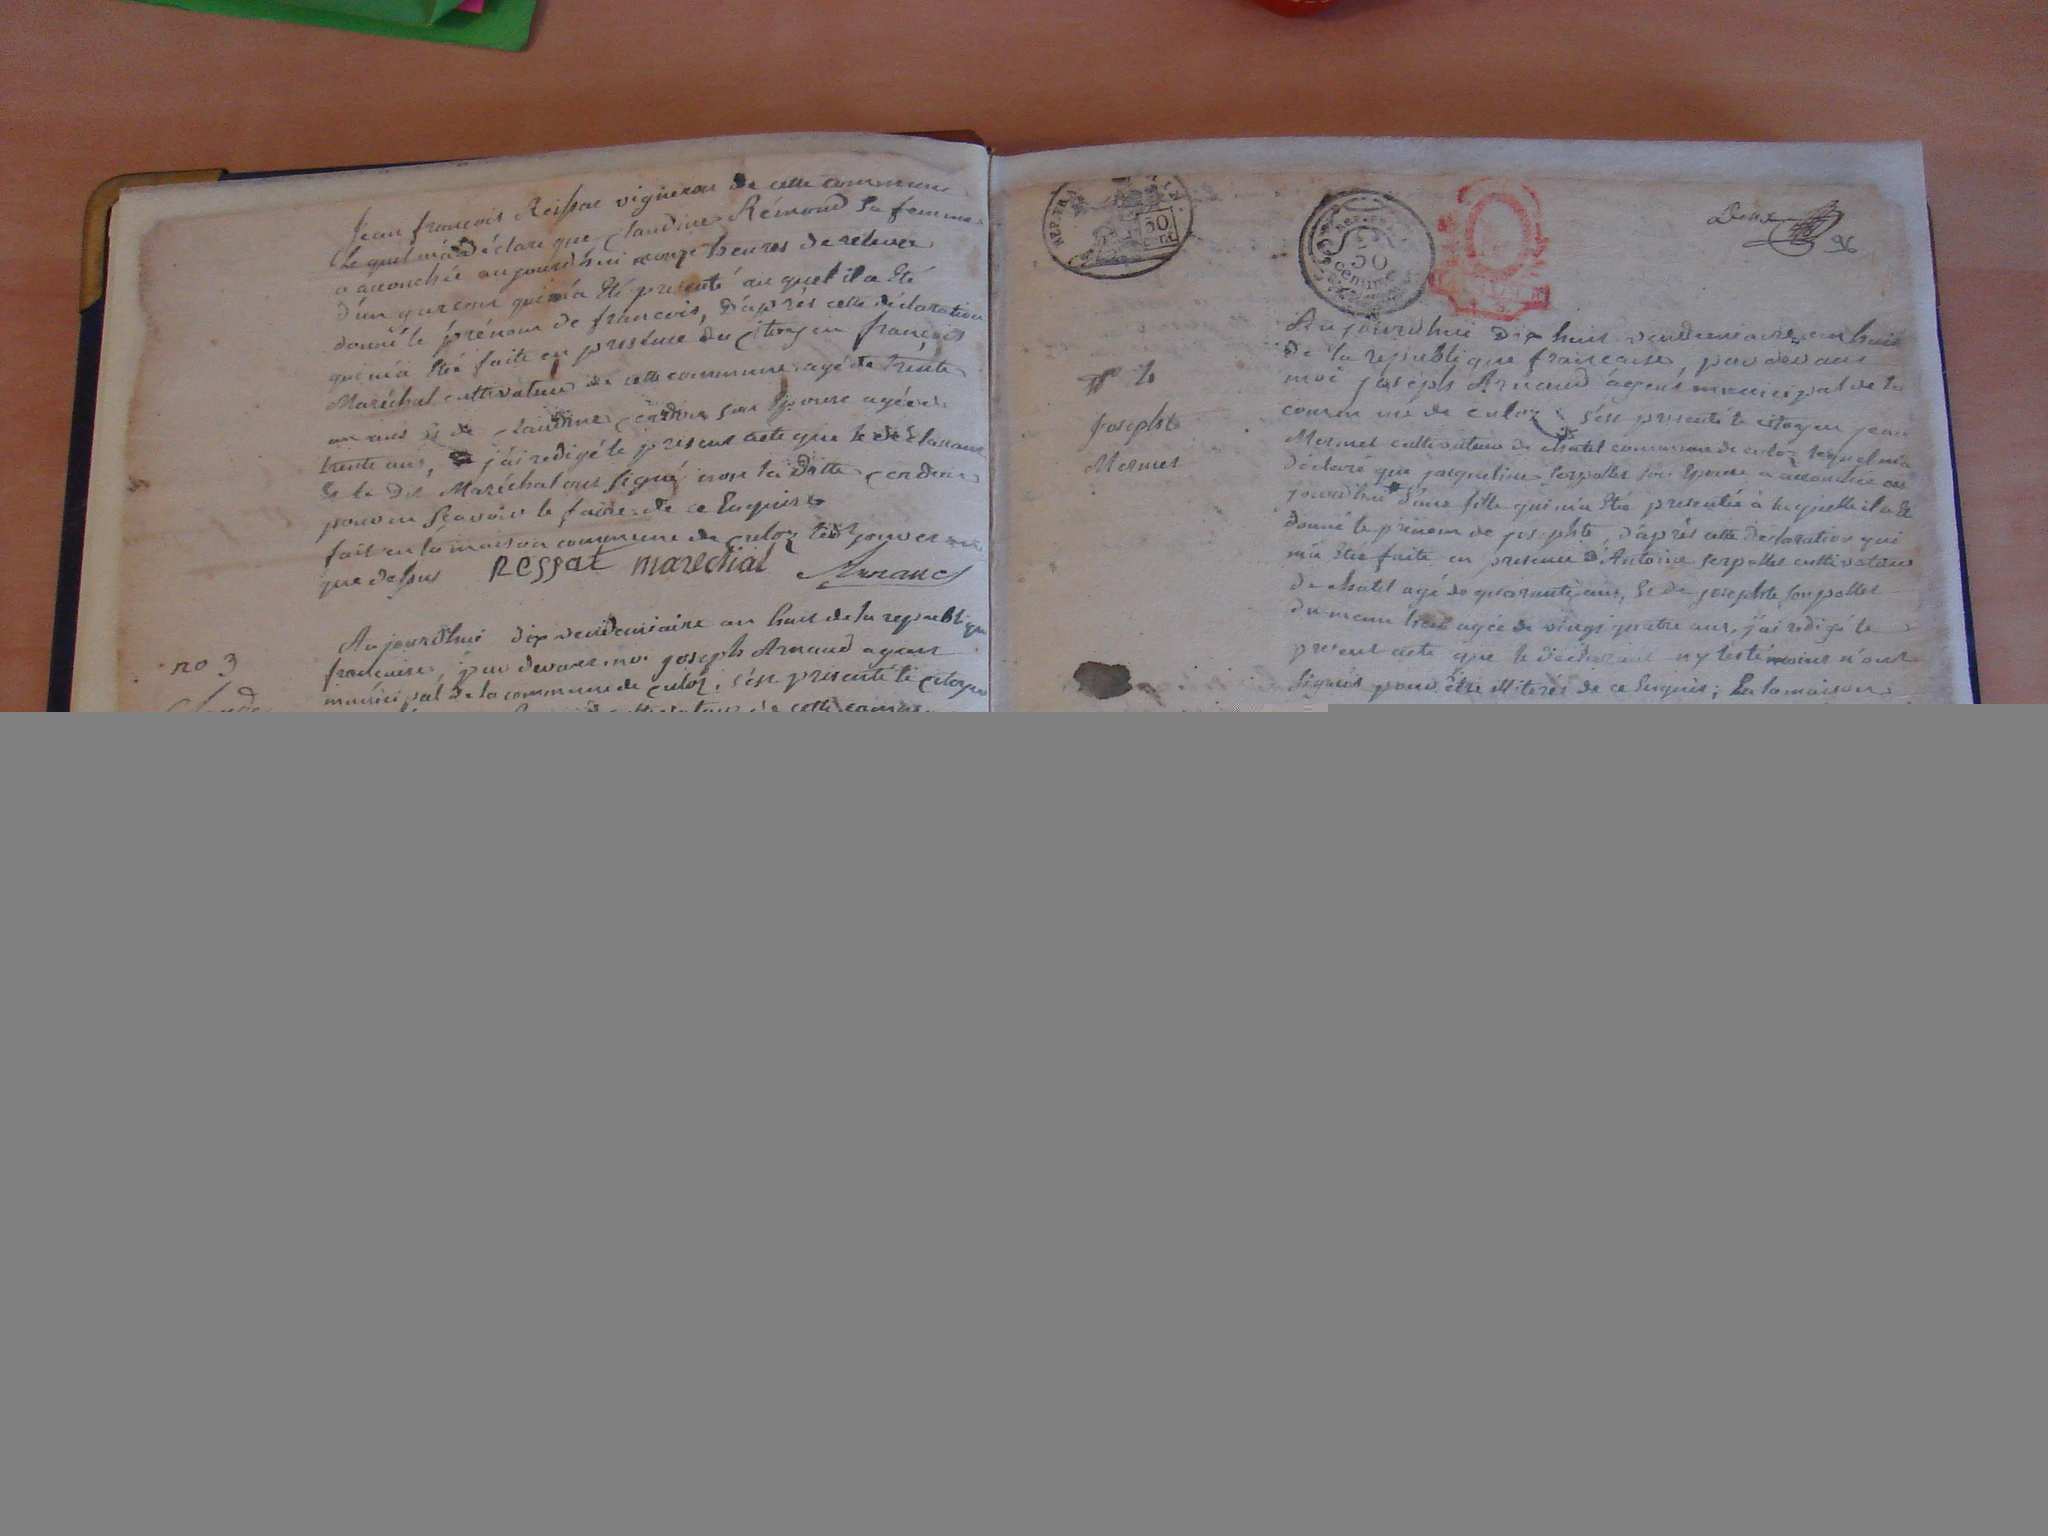 Jean françois Reissac vigneron de cette commune
Lequel m'a déclaré que Claudine Rémond sa femme
a accouchée aujourd'hui a onze heures de relever
d'un garcons qui m'a Eté presenté au quel il a Eté
donné le prénom de francois, D'après cette déclaration
qui m'a Eté faite en presence du Citoyen françois
Maréchal cultivateur de cette commune agé de trente
un ans Et de Claudine Cerdon son Epouse agée de
trente ans, j'ai redigé le present acte que le déclarant
Et le Dit Maréchal ont signé non la ditte Cerdon
pour ne sçavoir le faire de ce Enquise
fait en la maison commune de Culoz les Jour et
que dessus Ressat marechal Arnaud
no 3
Aujourd'hui dix vendemiaire an huit de la republique
francaise, par devant moi joseph Arnaud agent
municipal de la commune de Culoz, s'est presenté le Citoyen
cultivateur de cette commune
Claude
NEP. FR.
50
50
centimes
Deux
no 4
Josephte
Mermet
Aujourd'hui dix huit vendemiaire an huit
de la republique francaise, par devant
moi joseph Arnaud agent municipal de la
commune de culoz s'est presenté le citoyen jean
Mermet cultivateur de chatel commune de culoz lequel m'a
déclaré que jacqueline serpollet son Epouse a accouchée au
jourd'hui d'une fille qui m'a Eté presentée à laquelle il a Eté
donné le prénom de josephte, d'après cette declaration qui
m'a Etée faite en presence d'Antoine serpollet cultivateur
de chatel agé de quarante ans, Et de josephte serpollet
du meme lieu agée de vingt quatre ans, j'ai redigé le
present acte que le declarant ny les témoins n'ont
signés pour être illiterés de ce Enquis; En la maison